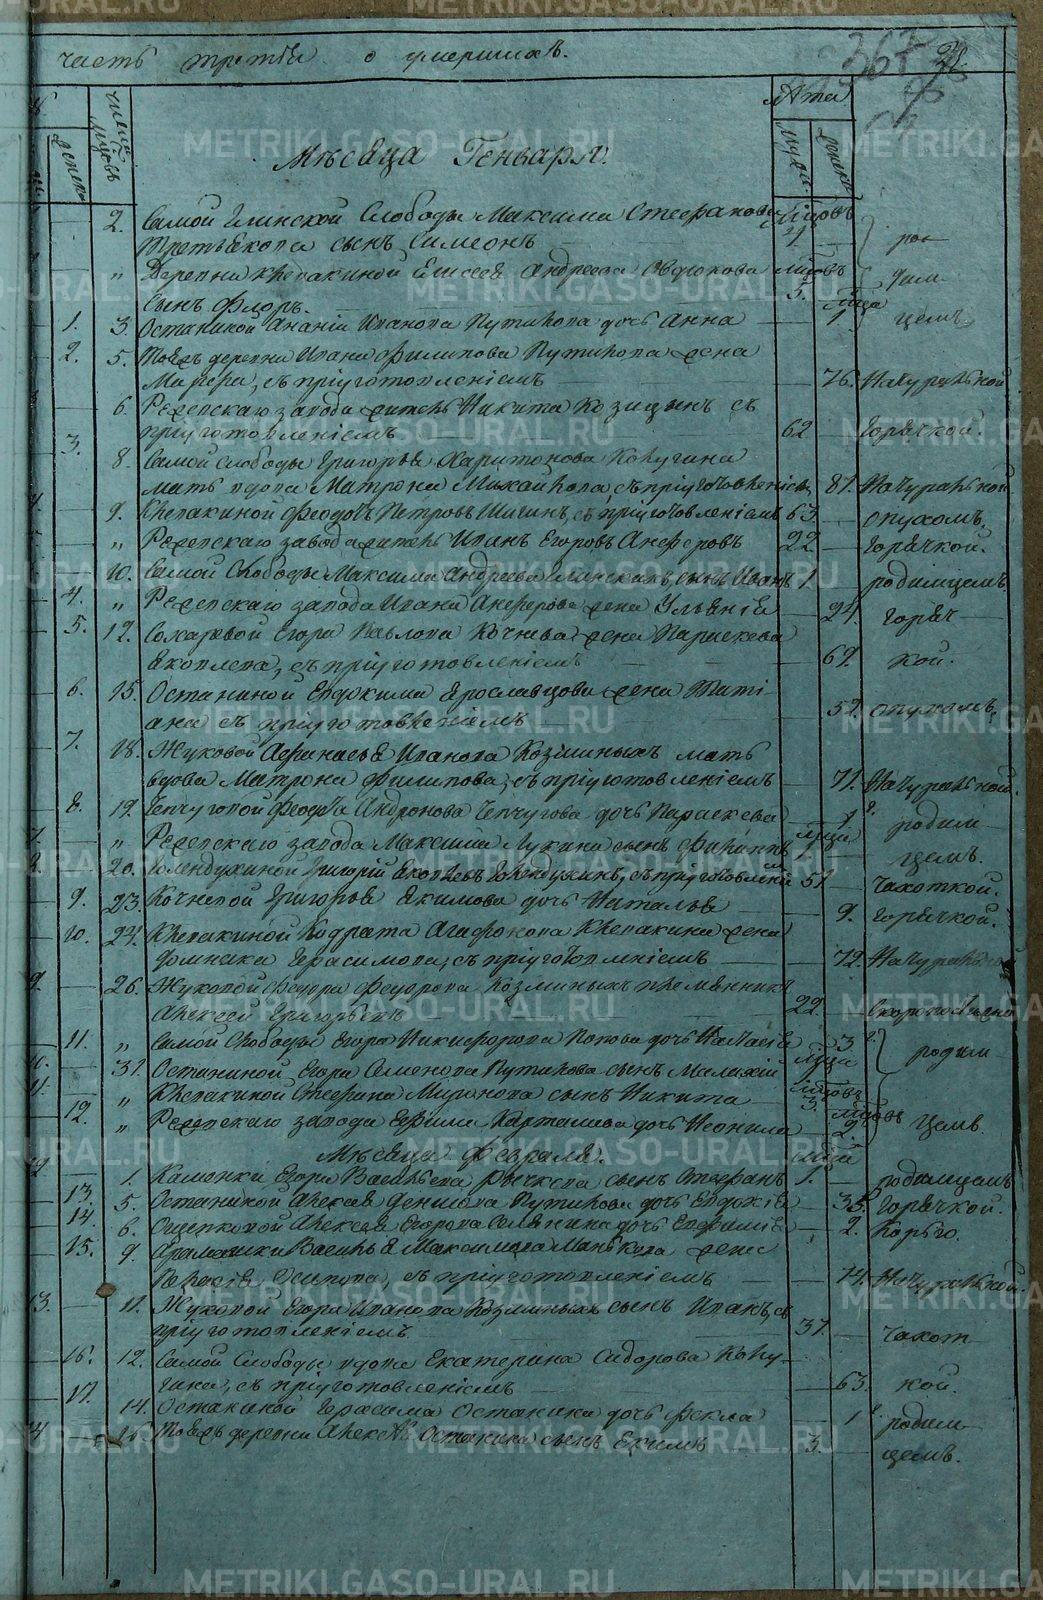 часть третїя о умершихъ.
367
женска
число мцовъ
Лѣта
муж.
женска
Мѣсяца Генваря.
2. Самой Глинской Слободы Максима Стефанова мцовъ
Третьякова сынъ Симеонъ 4 ро
„ Деревни Клевакиной Елисея Андреева Овдюкова мцовъ дим
сынъ Флоръ. 5. мца
1. 3. Останиной Ананїи Иванова Путилова дочь Анна 1 цемъ
2. 5. Тояжъ деревни Ивана Филипова Путилова жена
Марфа, съ прїуготовленїемъ 76. Натуральной
6. Режевскаго завода житель Никита Козицынъ съ
прїуготовленїемъ 62 Горячкой.
3. 8. Самой слободы Григорья Харитонова Кочугина
мать вдова Матрона Михайлова, съ прїуготовленїемъ 81. Натуральной
9. Клевакиной Феодотъ Петровъ Шигинъ, съ прїуготовленїемъ 63. опухомъ.
„ Режевскаго завода житель Иванъ Егоровъ Анферовъ 22 Горячкой.
10. Самой Слободы Максима Андреева Глинскихъ сынъ Иванъ 1 родимцемъ
4. „ Режевскаго завода Ивана Анферова жена Ульянїя 24. Горяч
5. 12. Сохаревой Егора Павлова Кочнева жена Параскева
Яковлева, съ прїуготовленїемъ 69. кой.
6. 15. Останиной Евдокима Ярославцова жена Татї-
ана съ прїуготовленїемъ 52. опухомъ.
7. 18. Жуковой Афанасья Иванова Козминыхъ мать
вдова Матрона Филипова, съ прїуготовленїемъ 71. Натуральной.
8. 19. Чепчуговой Феофила Андронова Чепчугова дочь Параскева 1 родим
7. „ Режевскаго завода Максима Лукина сынъ Филиппъ мца цемъ.
8. 20. Голендухиной Григорїй Яковлевъ Голендухинъ, съ прїуготовленїемъ 51 Чахоткой.
9. 23. Кочневой Григорья Екимова дочь Наталья 9. Горячкой.
10. 24. Клевакиной Кодрата Агафонова Клевакина жена
Домника Герасимова, съ прїуготовленїемъ 72. Натуральной
9. 26. Жуковой Федора Федорова Козминыхъ племянникъ
Алексей Григорьевъ 22. Скоропостижно
11. „ Самой Слободы Егора Никифорова Попова дочь Наталїя 3 родим
10. 31. Останиной Егора Семенова Путилова сынъ Малахїй мца
11. „ Клевакиной Стефана Миронова сынъ Никита мцовъ 3.
12. „ Режевскаго завода Ефима Карташева дочь Неонила мцовъ 2. цемъ.
Мѣсяца Февраля.
12 1. Каменки Егора Васильева Рычкова сынъ Стефанъ 1. родимцемъ
13. 5. Останиной Алексея Денисова Путилова дочь Евдокїя 35. Горячкой.
14. 6. Ощепковой Алексея Егорова дочь Евфимїя 2. Корью.
15. 9. Арамашки Василья Максимова Манькова жена
Осипова, съ прїуготовленїемъ 74. Натуральной
13. 11. Жуковой Егора Иванова Козминыхъ сынъ Иванъ, съ
прїуготовленїемъ. 37. Чахот
16. 12. Самой Слободы вдова Екатерина Сидорова Кочу-
гина, съ прїуготовленїемъ 63. кой.
17. 14. Останиной Герасима Останина дочь Фекла 1 родим
14 16 Тояжъ деревни Останина сынъ Ефимъ 3. цемъ.